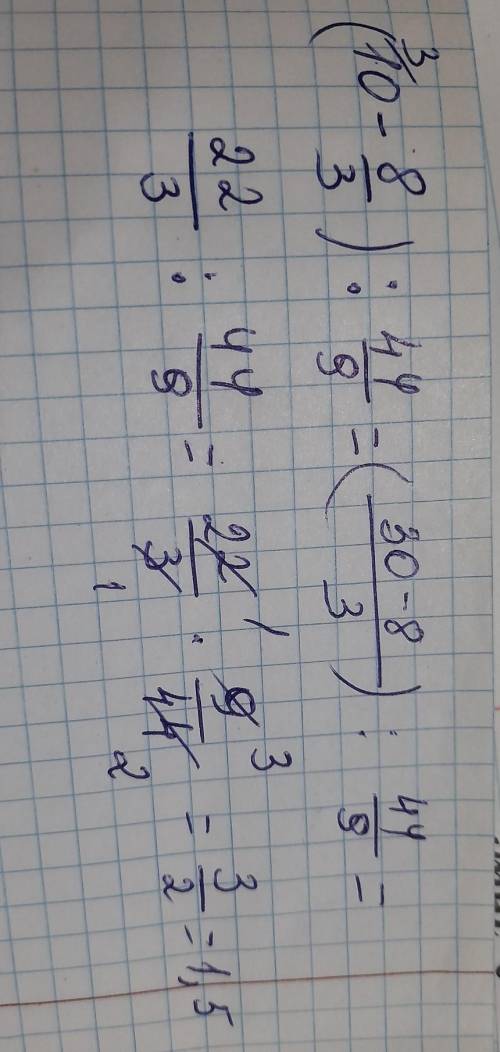 (10³ - 8/3) : 44/9 = (30-8/3) : 44/9 =
22/3 : 44/9 = 22/3 · 9/44 = 3/2 = 1,5